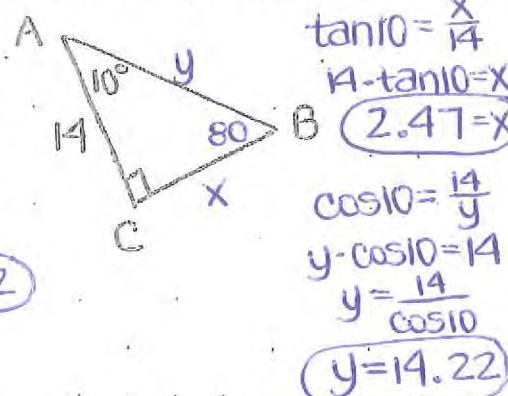 A
10°
y
14
80
B
x
C
2
tan10 = x/14
14·tan10=x
2.47=x
cos10 = 14/y
y·cos10=14
y = 14/cos10
y=14.22